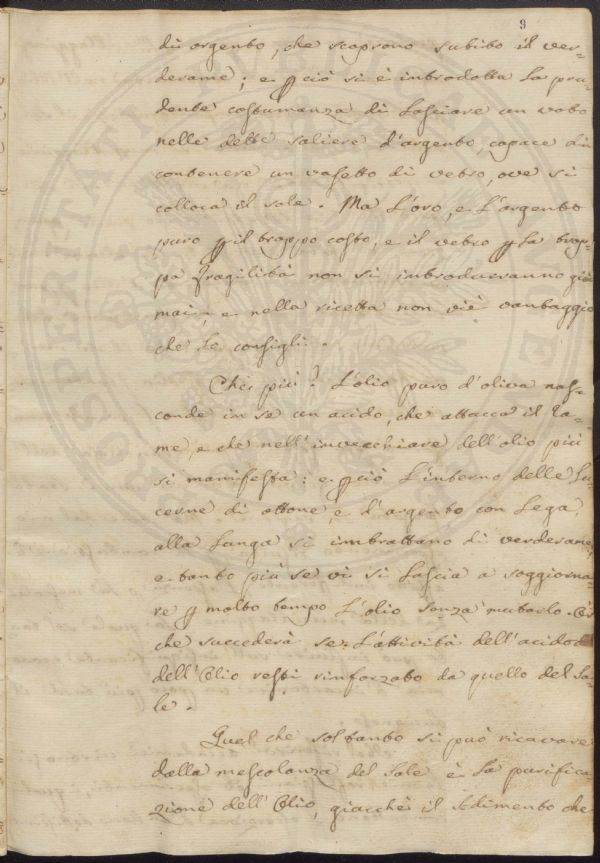 9
di argento, che scoprono subito il ver-
derame; e p ciò si è introdotta la pru-
dente costumanza di lasciare un voto
nelle dette saliere d'argento, capace di
contenere un vasetto di vetro, ove si
colloca il sale. Ma l'oro, e l'argento
puro p il troppo costo, e il vetro p la trop-
pa fragilità non si introdurranno già
mai, e nella ricetta non vi è vantaggio
che le consigli.
Che più? L'olio puro d'oliva nas-
conde in se un acido, che attacca il ra-
me, e che nell'invecchiare dell'olio più
si manifesta: e p ciò l'interno delle lu-
cerne di ottone, e d'argento con lega,
alla lunga si imbrattano di verderame,
e tanto più se vi si lascia a soggiorna-
re p molto tempo l'olio senza mutarlo.
che succederà se l'attività dell'acido
dell'Olio resti rinforzato da quello del Sa-
le.
Quel che soltanto si può ricavare
dalla mescolanza del Sale è la purifica-
zione dell'Olio, giacchè il sedimento che
PROSPERITATI PUBLICAE